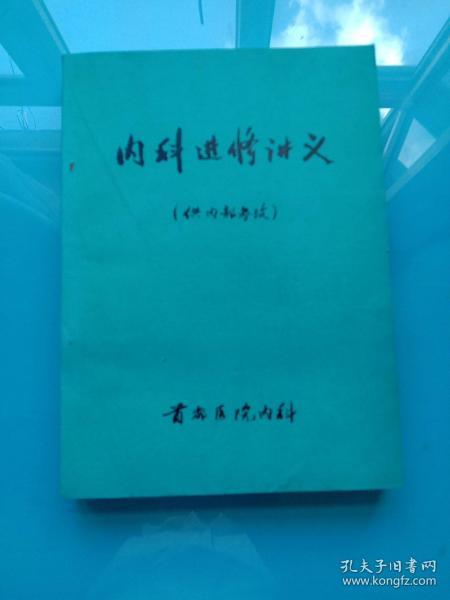 内科进修讲义
(供内部参考)
首都医院内科
孔夫子旧书网
www.kongfz.com